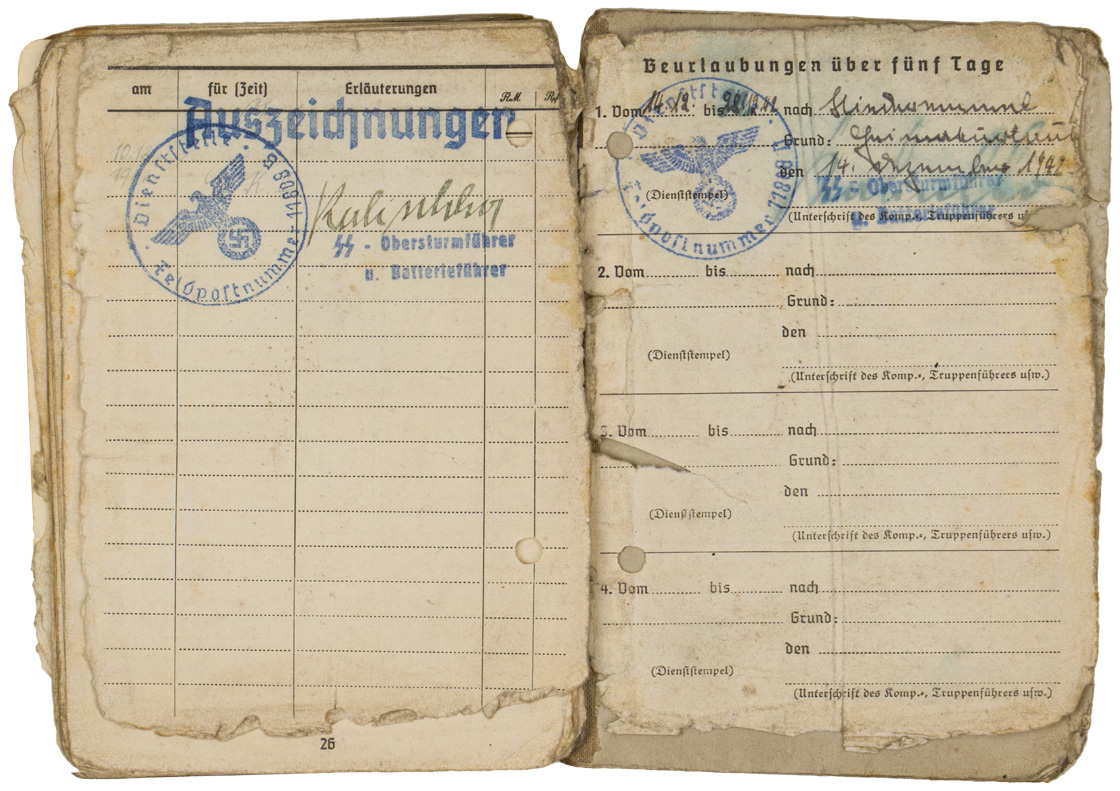 am für (Zeit) Erläuterungen RM Rpf
Auszeichnungen
Dienststelle · Feldpostnummer
SS - Obersturmführer
u. Batterieführer
26
Beurlaubungen über fünf Tage
1. Vom 14.12. bis nach
Grund:
den 14. Dezember 1942
Dienststelle · Feldpostnummer
(Dienststempel)
SS - Obersturmführer
u. Batterieführer
(Unterschrift des Komp.-, Truppenführers usw.)
2. Vom bis nach
Grund:
den
(Dienststempel)
(Unterschrift des Komp.-, Truppenführers usw.)
3. Vom bis nach
Grund:
den
(Dienststempel)
(Unterschrift des Komp.-, Truppenführers usw.)
4. Vom bis nach
Grund:
den
(Dienststempel)
(Unterschrift des Komp.-, Truppenführers usw.)